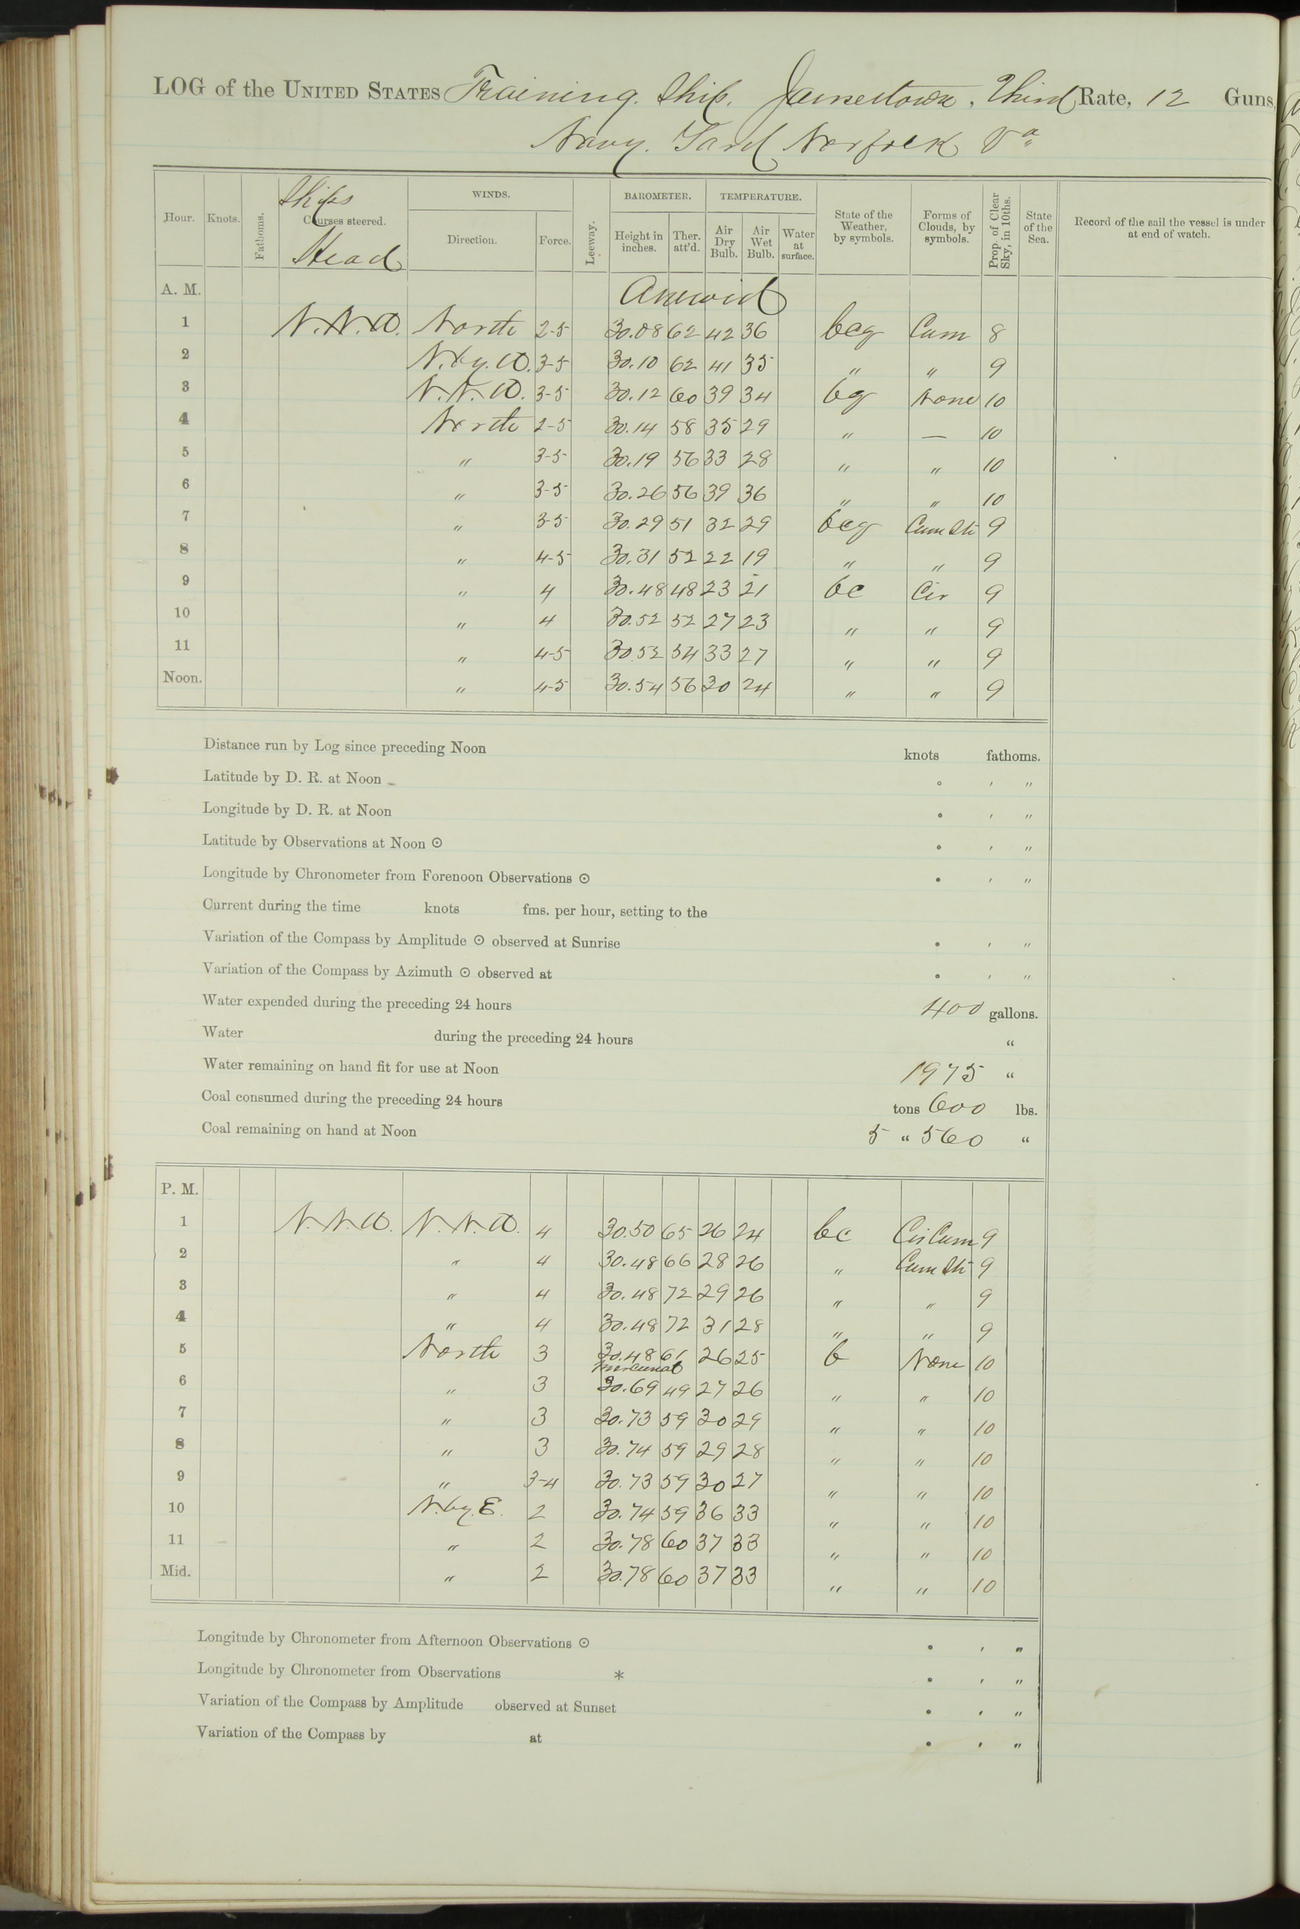 LOG of the UNITED STATES Training Ship Jamestown, Third Rate, 12 Guns,
Navy Yard Norfolk Va.
Hour. Knots. Fathoms. Ships Courses steered. Head WINDS. Direction. Force. Leeway. BAROMETER. Height in inches. Ther. att'd. TEMPERATURE. Air Dry Bulb. Air Wet Bulb. Water at surface. State of the Weather, by symbols. Forms of Clouds, by symbols. Prop. of Clear Sky, in 10ths. State of the Sea. Record of the sail the vessel is under at end of watch.
A. M. Aneroid
1 N.N.W. North 2-5 30.08 62 42 36 bcg Cum 8
2 N.by.W. 3-5 30.10 62 41 35 " " 9
3 N.N.W. 3-5 30.12 60 39 34 bg None 10
4 North 2-5 30.14 58 35 29 " — 10
5 " 3-5 30.19 56 33 28 " " 10
6 " 3-5 30.26 56 39 36 " " 10
7 " 3-5 30.29 51 32 29 bcg Cum Str 9
8 " 4-5 30.31 52 22 19 " " 9
9 " 4 30.48 48 23 21 bc Cir 9
10 " 4 30.52 52 27 23 " " 9
11 " 4-5 30.52 54 33 27 " " 9
Noon. " 4-5 30.54 56 30 24 " " 9
Distance run by Log since preceding Noon knots fathoms.
Latitude by D. R. at Noon ° ' "
Longitude by D. R. at Noon ° ' "
Latitude by Observations at Noon ⊙ ° ' "
Longitude by Chronometer from Forenoon Observations ⊙ ° ' "
Current during the time knots fms. per hour, setting to the
Variation of the Compass by Amplitude ⊙ observed at Sunrise ° ' "
Variation of the Compass by Azimuth ⊙ observed at ° ' "
Water expended during the preceding 24 hours 400 gallons.
Water during the preceding 24 hours "
Water remaining on hand fit for use at Noon 1975 "
Coal consumed during the preceding 24 hours tons 600 lbs.
Coal remaining on hand at Noon 5 " 560 "
P. M.
1 N.N.W. N.N.W. 4 30.50 65 26 24 bc Cir Cum 9
2 " 4 30.48 66 28 26 " Cum Str 9
3 " 4 30.48 72 29 26 " " 9
4 " 4 30.48 72 31 28 " " 9
5 North 3 30.48 61 26 25 b None 10
Mercurial
6 " 3 30.69 49 27 26 " " 10
7 " 3 30.73 59 30 29 " " 10
8 " 3 30.74 59 29 28 " " 10
9 " 3-4 30.73 59 30 27 " " 10
10 N.by.E. 2 30.74 59 36 33 " " 10
11 " 2 30.78 60 37 33 " " 10
Mid. " 2 30.78 60 37 33 " " 10
Longitude by Chronometer from Afternoon Observations ⊙ ° ' "
Longitude by Chronometer from Observations * ° ' "
Variation of the Compass by Amplitude observed at Sunset ° ' "
Variation of the Compass by at ° ' "